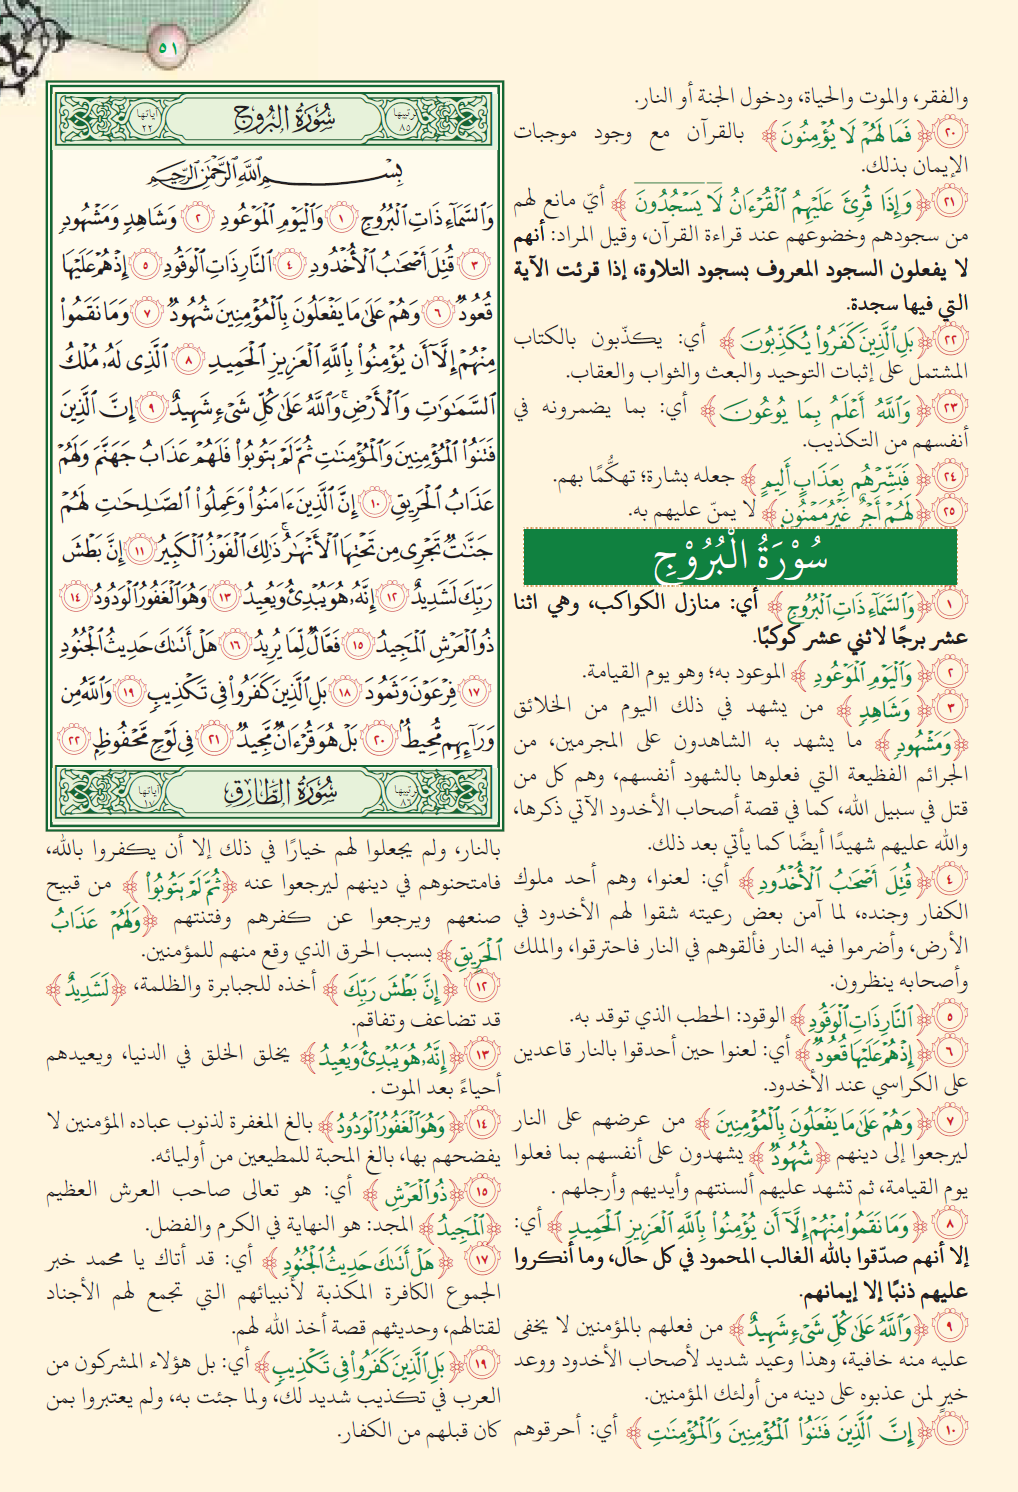 ٥١
والفقر، والموت والحياة، ودخول الجنة أو النار.
٢٠ ﴿فَمَا لَهُمْ لَا يُؤْمِنُونَ﴾ بالقرآن مع وجود موجبات
الإيمان بذلك.
٢١ ﴿وَإِذَا قُرِئَ عَلَيْهِمُ ٱلْقُرْءَانُ لَا يَسْجُدُونَ﴾ أيّ مانع لهم
من سجودهم وخضوعهم عند قراءة القرآن، وقيل المراد: أنهم
لا يفعلون السجود المعروف بسجود التلاوة، إذا قرئت الآية
التي فيها سجدة.
٢٢ ﴿بَلِ ٱلَّذِينَ كَفَرُوا۟ يُكَذِّبُونَ﴾ أي: يكذّبون بالكتاب
المشتمل على إثبات التوحيد والبعث والثواب والعقاب.
٢٣ ﴿وَٱللَّهُ أَعْلَمُ بِمَا يُوعُونَ﴾ أي: بما يضمرونه في
أنفسهم من التكذيب.
٢٤ ﴿فَبَشِّرْهُم بِعَذَابٍ أَلِيمٍ﴾ جعله بشارة؛ تهكُّمًا بهم.
٢٥ ﴿لَهُمْ أَجْرٌ غَيْرُ مَمْنُونٍ﴾ لا يمنّ عليهم به.
سُوْرَةُ الْبُرُوْجِ
١ ﴿وَٱلسَّمَآءِ ذَاتِ ٱلْبُرُوجِ﴾ أي: منازل الكواكب، وهي اثنا
عشر برجًا لاثني عشر كوكبًا.
٢ ﴿وَٱلْيَوْمِ ٱلْمَوْعُودِ﴾ الموعود به؛ وهو يوم القيامة.
٣ ﴿وَشَاهِدٍ﴾ من يشهد في ذلك اليوم من الخلائق
﴿وَمَشْهُودٍ﴾ ما يشهد به الشاهدون على المجرمين، من
الجرائم الفظيعة التي فعلوها بالشهود أنفسهم، وهم كل من
قتل في سبيل الله، كما في قصة أصحاب الأخدود الآتي ذكرها،
والله عليهم شهيدًا أيضًا كما يأتي بعد ذلك.
٤ ﴿قُتِلَ أَصْحَٰبُ ٱلْأُخْدُودِ﴾ أي: لعنوا، وهم أحد ملوك
الكفار وجنده، لما آمن بعض رعيته شقوا لهم الأخدود في
الأرض، وأضرموا فيه النار فألقوهم في النار فاحترقوا، والملك
وأصحابه ينظرون.
٥ ﴿ٱلنَّارِ ذَاتِ ٱلْوَقُودِ﴾ الوقود: الحطب الذي توقد به.
٦ ﴿إِذْ هُمْ عَلَيْهَا قُعُودٌ﴾ أي: لعنوا حين أحدقوا بالنار قاعدين
على الكراسي عند الأخدود.
٧ ﴿وَهُمْ عَلَىٰ مَا يَفْعَلُونَ بِٱلْمُؤْمِنِينَ﴾ من عرضهم على النار
ليرجعوا إلى دينهم ﴿شُهُودٌ﴾ يشهدون على أنفسهم بما فعلوا
يوم القيامة، ثم تشهد عليهم ألسنتهم وأيديهم وأرجلهم .
٨ ﴿وَمَا نَقَمُوا۟ مِنْهُمْ إِلَّآ أَن يُؤْمِنُوا۟ بِٱللَّهِ ٱلْعَزِيزِ ٱلْحَمِيدِ﴾ أي:
إلا أنهم صدّقوا بالله الغالب المحمود في كل حال، وما أنكروا
عليهم ذنبًا إلا إيمانهم.
٩ ﴿وَٱللَّهُ عَلَىٰ كُلِّ شَىْءٍ شَهِيدٌ﴾ من فعلهم بالمؤمنين لا يخفى
عليه منه خافية، وهذا وعيد شديد لأصحاب الأخدود ووعد
خير لمن عذبوه على دينه من أولئك المؤمنين.
١٠ ﴿إِنَّ ٱلَّذِينَ فَتَنُوا۟ ٱلْمُؤْمِنِينَ وَٱلْمُؤْمِنَٰتِ﴾ أي: أحرقوهم
ترتيبها ٨٥ سُورَةُ البُرُوجِ آياتها ٢٢
بِسْمِ ٱللَّهِ ٱلرَّحْمَٰنِ ٱلرَّحِيمِ
وَٱلسَّمَآءِ ذَاتِ ٱلْبُرُوجِ ١ وَٱلْيَوْمِ ٱلْمَوْعُودِ ٢ وَشَاهِدٍ وَمَشْهُودٍ
٣ قُتِلَ أَصْحَٰبُ ٱلْأُخْدُودِ ٤ ٱلنَّارِ ذَاتِ ٱلْوَقُودِ ٥ إِذْ هُمْ عَلَيْهَا
قُعُودٌ ٦ وَهُمْ عَلَىٰ مَا يَفْعَلُونَ بِٱلْمُؤْمِنِينَ شُهُودٌ ٧ وَمَا نَقَمُوا۟
مِنْهُمْ إِلَّآ أَن يُؤْمِنُوا۟ بِٱللَّهِ ٱلْعَزِيزِ ٱلْحَمِيدِ ٨ ٱلَّذِى لَهُۥ مُلْكُ
ٱلسَّمَٰوَٰتِ وَٱلْأَرْضِ ۚ وَٱللَّهُ عَلَىٰ كُلِّ شَىْءٍ شَهِيدٌ ٩ إِنَّ ٱلَّذِينَ
فَتَنُوا۟ ٱلْمُؤْمِنِينَ وَٱلْمُؤْمِنَٰتِ ثُمَّ لَمْ يَتُوبُوا۟ فَلَهُمْ عَذَابُ جَهَنَّمَ وَلَهُمْ
عَذَابُ ٱلْحَرِيقِ ١٠ إِنَّ ٱلَّذِينَ ءَامَنُوا۟ وَعَمِلُوا۟ ٱلصَّٰلِحَٰتِ لَهُمْ
جَنَّٰتٌ تَجْرِى مِن تَحْتِهَا ٱلْأَنْهَٰرُ ۚ ذَٰلِكَ ٱلْفَوْزُ ٱلْكَبِيرُ ١١ إِنَّ بَطْشَ
رَبِّكَ لَشَدِيدٌ ١٢ إِنَّهُۥ هُوَ يُبْدِئُ وَيُعِيدُ ١٣ وَهُوَ ٱلْغَفُورُ ٱلْوَدُودُ ١٤
ذُو ٱلْعَرْشِ ٱلْمَجِيدُ ١٥ فَعَّالٌ لِّمَا يُرِيدُ ١٦ هَلْ أَتَىٰكَ حَدِيثُ ٱلْجُنُودِ
١٧ فِرْعَوْنَ وَثَمُودَ ١٨ بَلِ ٱلَّذِينَ كَفَرُوا۟ فِى تَكْذِيبٍ ١٩ وَٱللَّهُ مِن
وَرَآئِهِم مُّحِيطٌۢ ٢٠ بَلْ هُوَ قُرْءَانٌ مَّجِيدٌ ٢١ فِى لَوْحٍ مَّحْفُوظٍۭ ٢٢
ترتيبها ٨٦ سُورَةُ الطَّارِقِ آياتها ١٧
بالنار، ولم يجعلوا لهم خيارًا في ذلك إلا أن يكفروا بالله،
فامتحنوهم في دينهم ليرجعوا عنه ﴿ثُمَّ لَمْ يَتُوبُوا۟﴾ من قبيح
صنعهم ويرجعوا عن كفرهم وفتنتهم ﴿وَلَهُمْ عَذَابُ
ٱلْحَرِيقِ﴾ بسبب الحرق الذي وقع منهم للمؤمنين.
١٢ ﴿إِنَّ بَطْشَ رَبِّكَ﴾ أخذه للجبابرة والظلمة، ﴿لَشَدِيدٌ﴾
قد تضاعف وتفاقم.
١٣ ﴿إِنَّهُۥ هُوَ يُبْدِئُ وَيُعِيدُ﴾ يخلق الخلق في الدنيا، ويعيدهم
أحياءً بعد الموت .
١٤ ﴿وَهُوَ ٱلْغَفُورُ ٱلْوَدُودُ﴾ بالغ المغفرة لذنوب عباده المؤمنين لا
يفضحهم بها، بالغ المحبة للمطيعين من أوليائه.
١٥ ﴿ذُو ٱلْعَرْشِ﴾ أي: هو تعالى صاحب العرش العظيم
﴿ٱلْمَجِيدُ﴾ المجد: هو النهاية في الكرم والفضل.
١٧ ﴿هَلْ أَتَىٰكَ حَدِيثُ ٱلْجُنُودِ﴾ أي: قد أتاك يا محمد خبر
الجموع الكافرة المكذبة لأنبيائهم التي تجمع لهم الأجناد
لقتالهم، وحديثهم قصة أخذ الله لهم.
١٩ ﴿بَلِ ٱلَّذِينَ كَفَرُوا۟ فِى تَكْذِيبٍ﴾ أي: بل هؤلاء المشركون من
العرب في تكذيب شديد لك، ولما جئت به، ولم يعتبروا بمن
كان قبلهم من الكفار.